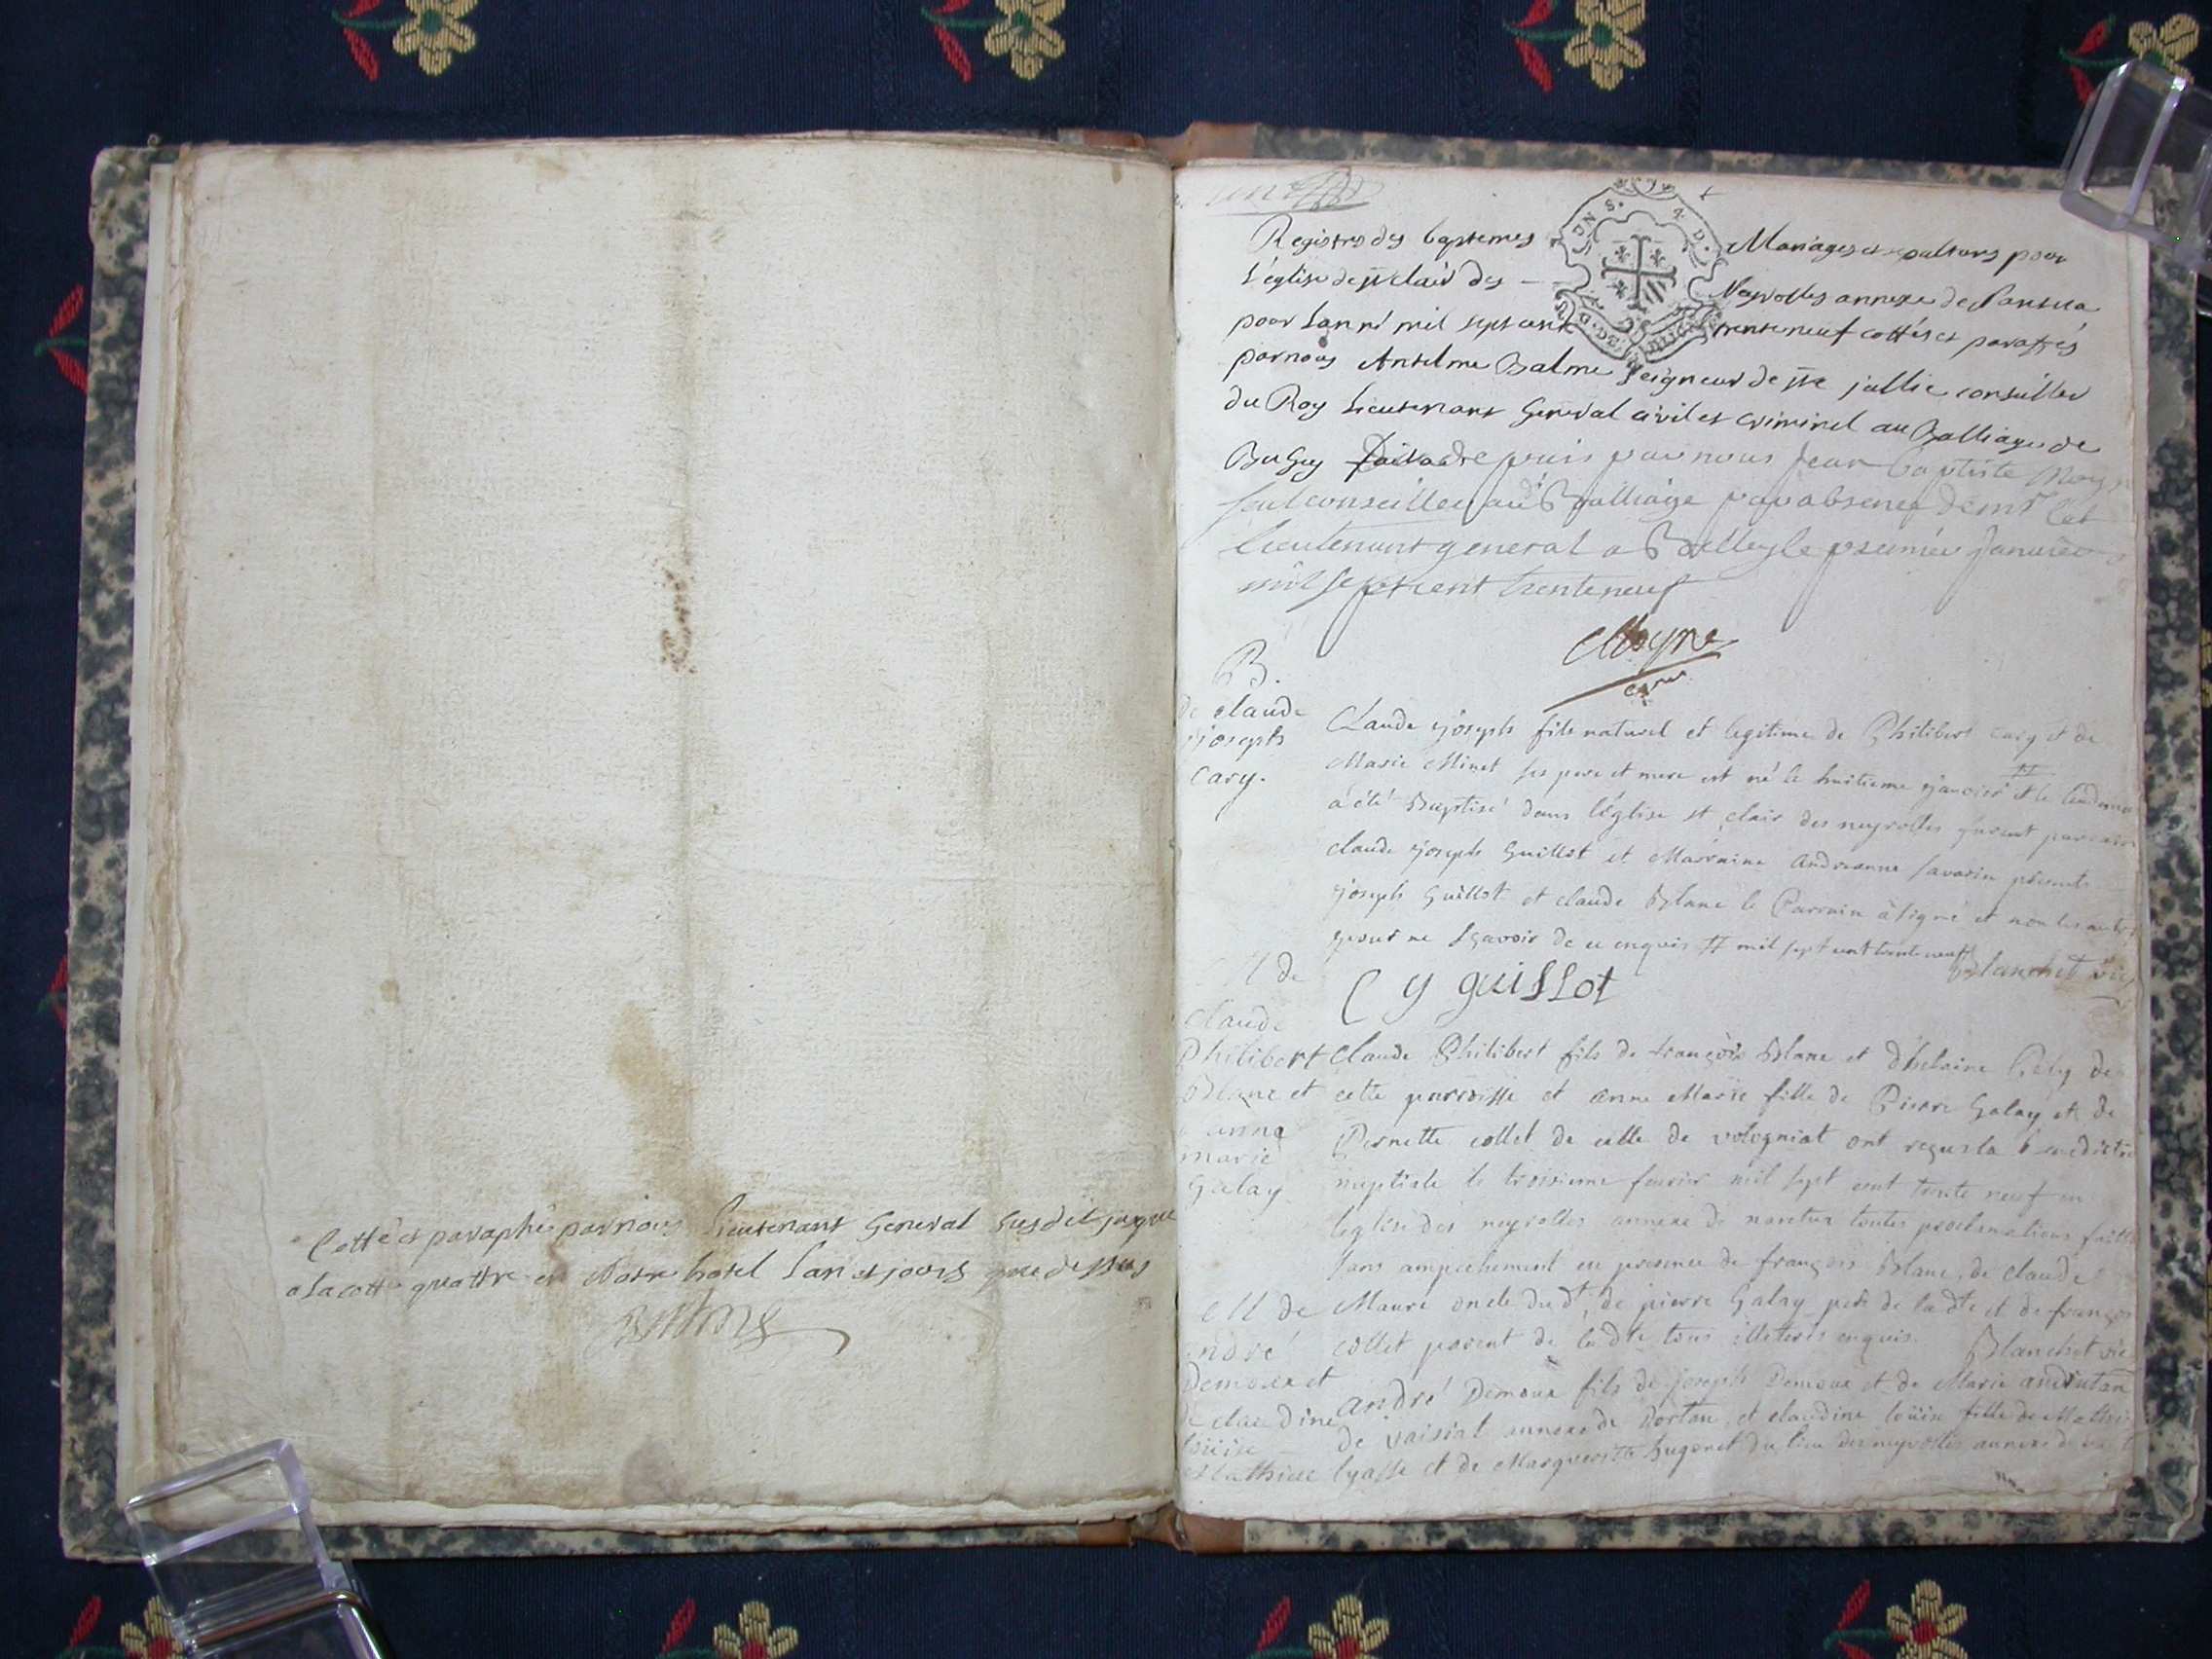 Cotté et paraphé par nous Lieutenant General susdit jusque
a la cotte quattre en Notre hotel L'an et jours que dessus
un
Registres des baptemes Mariages et sepultures pour
L'église de St Clair des Neyrolles annexe de Nantua
pour Lanné mil sept cent trente neuf cottés et parafés
par nous Antelme Balme seigneur de Ste jullie conseiller
du Roy Lieutenant General civil et criminel au Balliage de
Bugey depuis par nous Jean baptiste Moyne
seul conseiller aud Balliage par absence de mr let
Lieutenant general a Belley le premier Janvier
mil sept cent trente neuf
Moyne
B.
de claude
joseph
cary.
Claude joseph fils naturel et legitime de Philibert cary et de
Marie Minet ses pere et mere est né le huitieme janvier # et le lendemain
a été Baptisé dans l'église st clair des neyrolles furent parrain
claude joseph Guillot et Marraine andreanne savarin présents
joseph Guillot et claude Blanc le Parrain à signé et non les autres
pour ne sçavoir de ce enquis # mil sept cent trente neuf
Blanchet vic
C y guillot
M de
claude
Philibert
Blanc et
anne
marie
Galay
Claude Philibert fils de françois Blanc et d'helaine Gély de
cette parroisse et anne Marie fille de Pierre Galay et de
Pernette collet de celle de vologniat ont reçus la benediction
nuptiale le troisieme fevrier mil sept cent trente neuf en
leglise des neyrolles annexe de nantua toutes proclamations faittes
sans ampechement en presence de françois Blanc, de claude
Maure oncle du dt, de pierre Galay pere de la dte et de françois
collet parent de la dte tous illeterés enquis. Blanchet vic
M de
andré
Demoux et
de claudine
loüise
Mathieu
andré Demoux fils de joseph Demoux et de Marie
de vaisiat annexe de Dortan, et claudine loüise fille de Mathieu
lyasse et de Margueritte hugonet du lieu des neyrolles annexe de